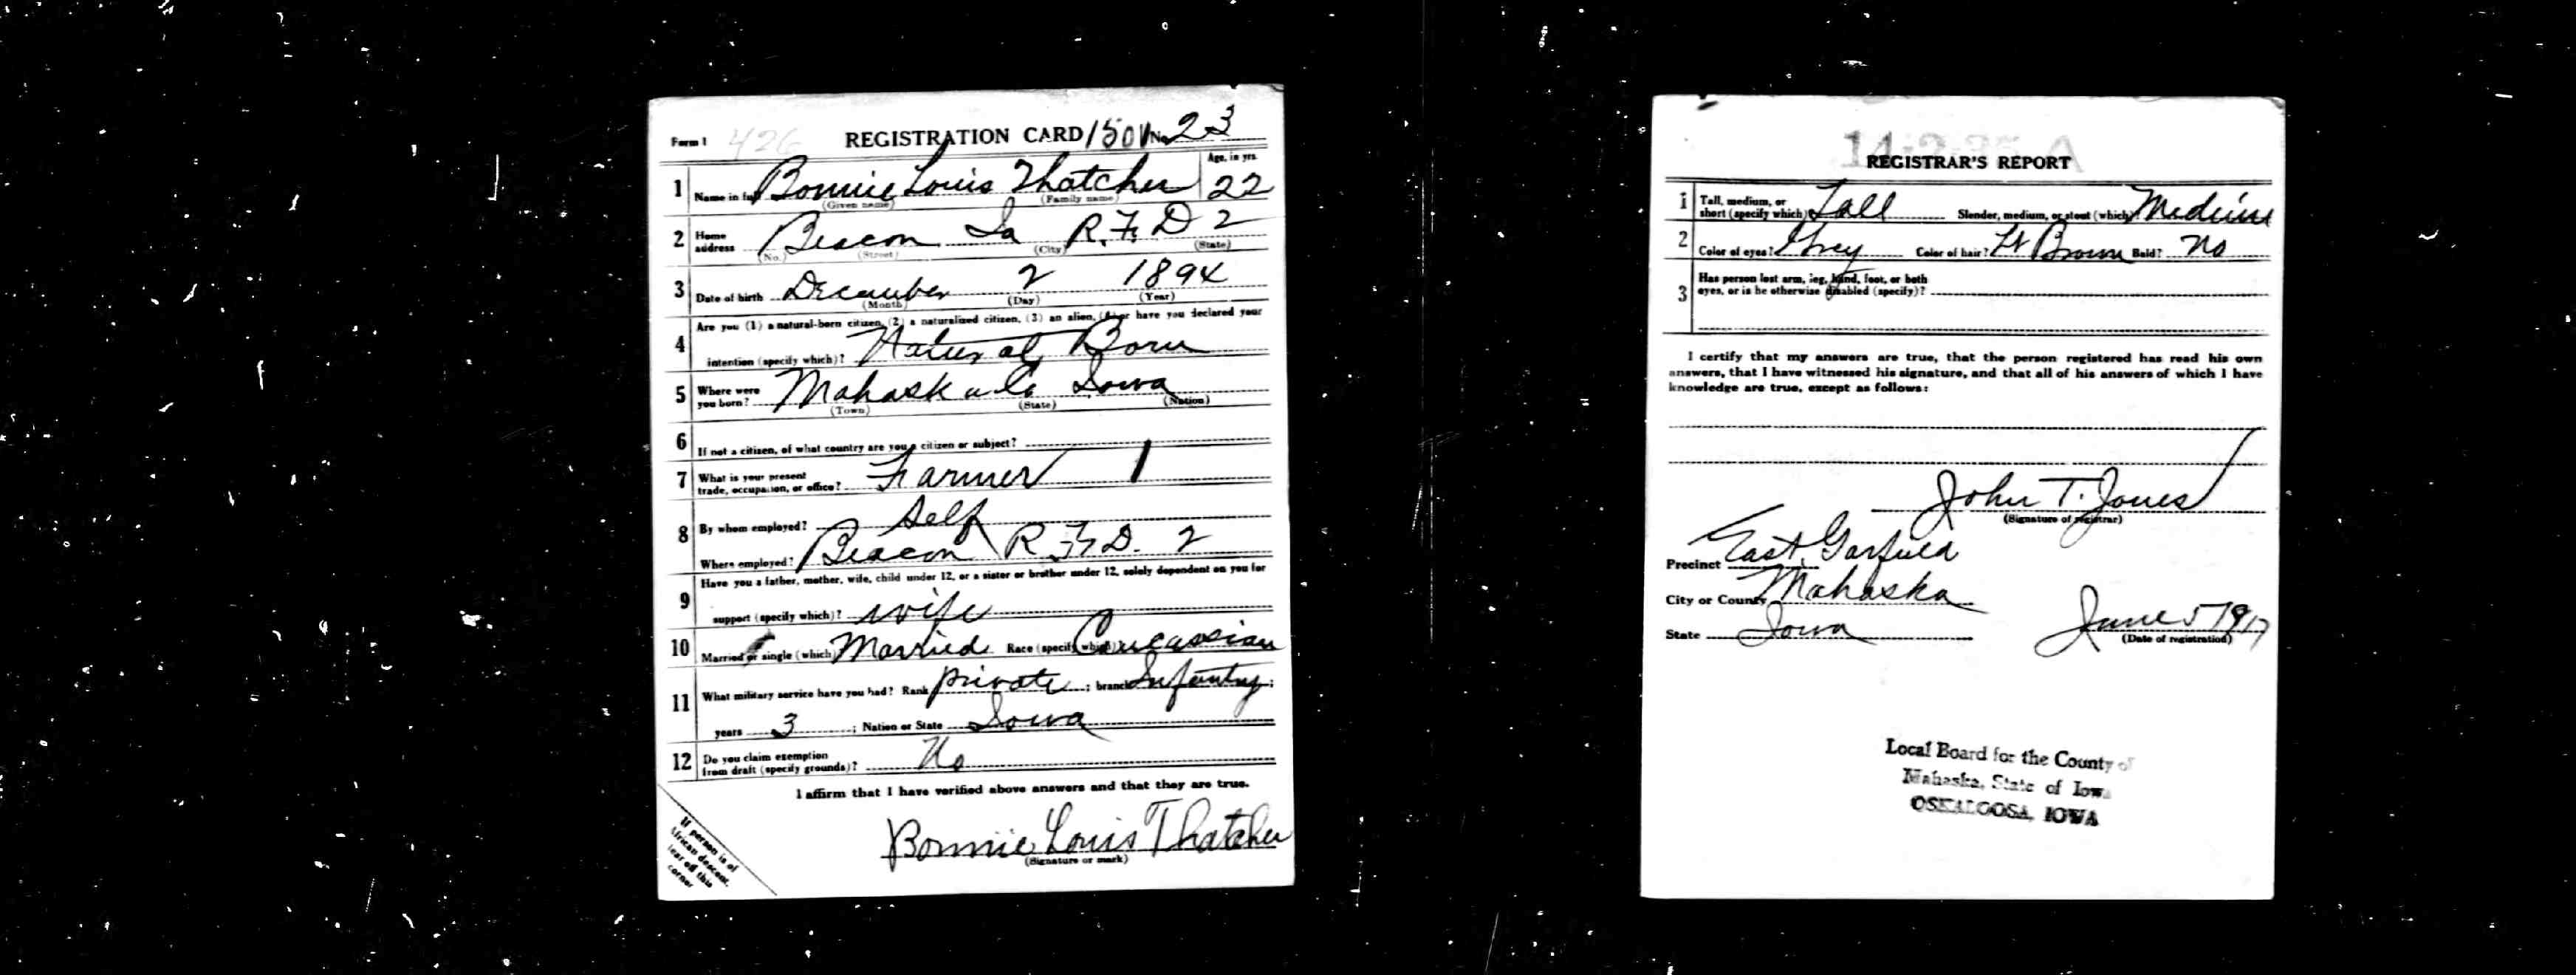 Form 1 426 REGISTRATION CARD 1501 No. 23
1 Name in full Bonnie Louis Thatcher Age, in yrs. 22
(Given name) (Family name)
2 Home address Beacon Ia R.F.D 2
(No.) (Street) (City) (State)
3 Date of birth December 2 1894
(Month) (Day) (Year)
4 Are you (1) a natural-born citizen, (2) a naturalized citizen, (3) an alien, (4) or have you declared your
intention (specify which)? Natural Born
5 Where were you born? Mahaska Co Iowa
(Town) (State) (Nation)
6 If not a citizen, of what country are you a citizen or subject?
7 What is your present trade, occupation, or office? Farmer 1
8 By whom employed? Self
Where employed? Beacon R.F.D. 2
9 Have you a father, mother, wife, child under 12, or a sister or brother under 12, solely dependent on you for
support (specify which)? wife
10 Married or single (which) Married Race (specify which) Caucassian
11 What military service have you had? Rank private ; branch Infantry ;
years 3 ; Nation or State Iowa
12 Do you claim exemption from draft (specify grounds)? No
I affirm that I have verified above answers and that they are true.
Bonnie Louis Thatcher
(Signature or mark)
If person is of
African descent,
tear off this
corner
REGISTRAR'S REPORT
1 Tall, medium, or short (specify which) Tall Slender, medium, or stout (which) Medium
2 Color of eyes? Grey Color of hair? Lt Brown Bald? No
3 Has person lost arm, leg, hand, foot, or both
eyes, or is he otherwise disabled (specify)?
I certify that my answers are true, that the person registered has read his own
answers, that I have witnessed his signature, and that all of his answers of which I have
knowledge are true, except as follows:
John T. Jones
(Signature of registrar)
Precinct East Garfield
City or County Mahaska
State Iowa June 5 1917
(Date of registration)
Local Board for the County of
Mahaska, State of Iowa
OSKALOOSA, IOWA